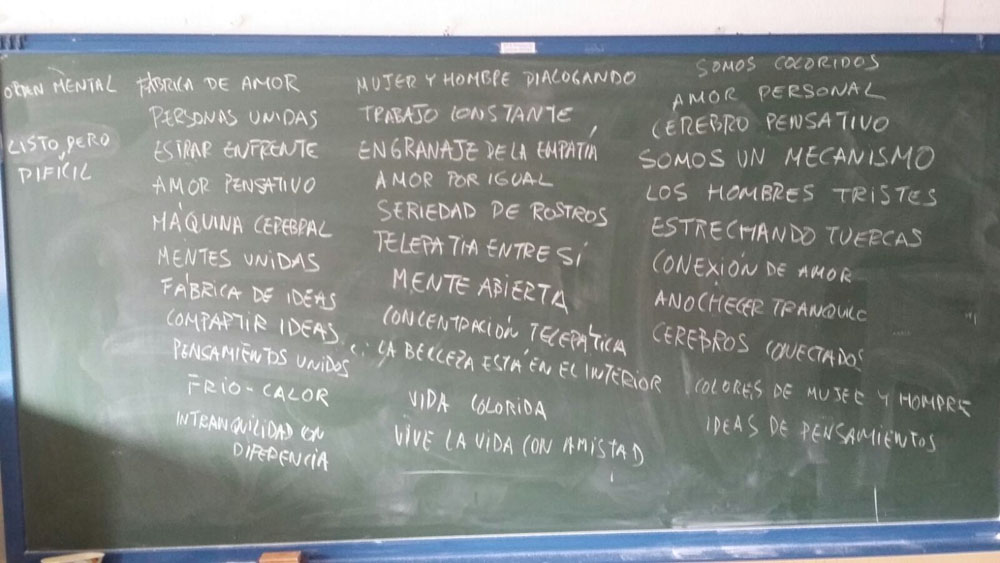 ORDEN MENTAL
LISTO, PERO
DIFÍCIL
FÁBRICA DE AMOR
PERSONAS UNIDAS
ESTIRAR ENFRENTE
AMOR PENSATIVO
MÁQUINA CEREBRAL
MENTES UNIDAS
FÁBRICA DE IDEAS
COMPARTIR IDEAS
PENSAMIENTOS UNIDOS
FRIO-CALOR
INTRANQUILIDAD CON
DIFERENCIA
MUJER Y HOMBRE DIALOGANDO
TRABAJO CONSTANTE
ENGRANAJE DE LA EMPATÍA
AMOR POR IGUAL
SERIEDAD DE ROSTROS
TELEPATIA ENTRE SÍ
MENTE ABIERTA
CONCENTRACIÓN TELEPÁTICA
LA BELLEZA ESTÁ EN EL INTERIOR
VIDA COLORIDA
VIVE LA VIDA CON AMISTAD
SOMOS COLORIDOS
AMOR PERSONAL
CEREBRO PENSATIVO
SOMOS UN MECANISMO
LOS HOMBRES TRISTES
ESTRECHANDO TUERCAS
CONEXIÓN DE AMOR
ANOCHECER TRANQUILO
CEREBROS CONECTADOS
COLORES DE MUJER Y HOMBRE
IDEAS DE PENSAMIENTOS